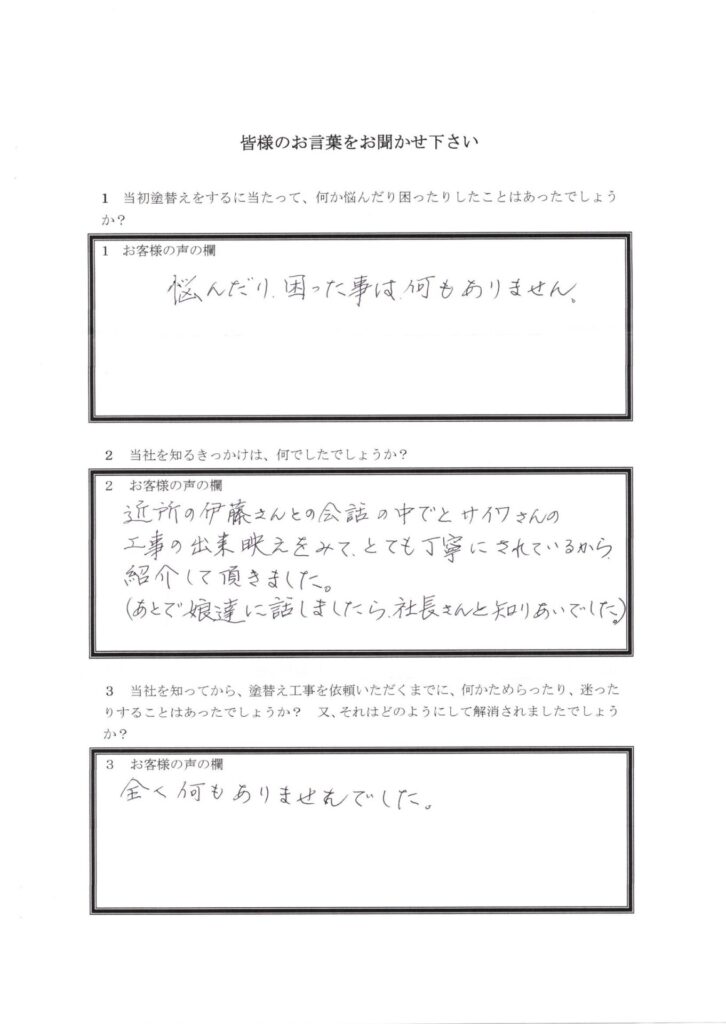 皆様のお言葉をお聞かせ下さい
1 当初塗替えをするに当たって、何か悩んだり困ったりしたことはあったでしょう
か？
1 お客様の声の欄
悩んだり、困った事は、何もありません。
2 当社を知るきっかけは、何でしたでしょうか？
2 お客様の声の欄
近所の伊藤さんとの会話の中でとサイワさんの
工事の出来映えをみて、とても丁寧にされているから、
紹介して頂きました。
(あとで娘達に話しましたら、社長さんと知りあいでした。)
3 当社を知ってから、塗替え工事を依頼いただくまでに、何かためらったり、迷った
りすることはあったでしょうか？ 又、それはどのようにして解消されましたでしょう
か？
3 お客様の声の欄
全く何もありませんでした。